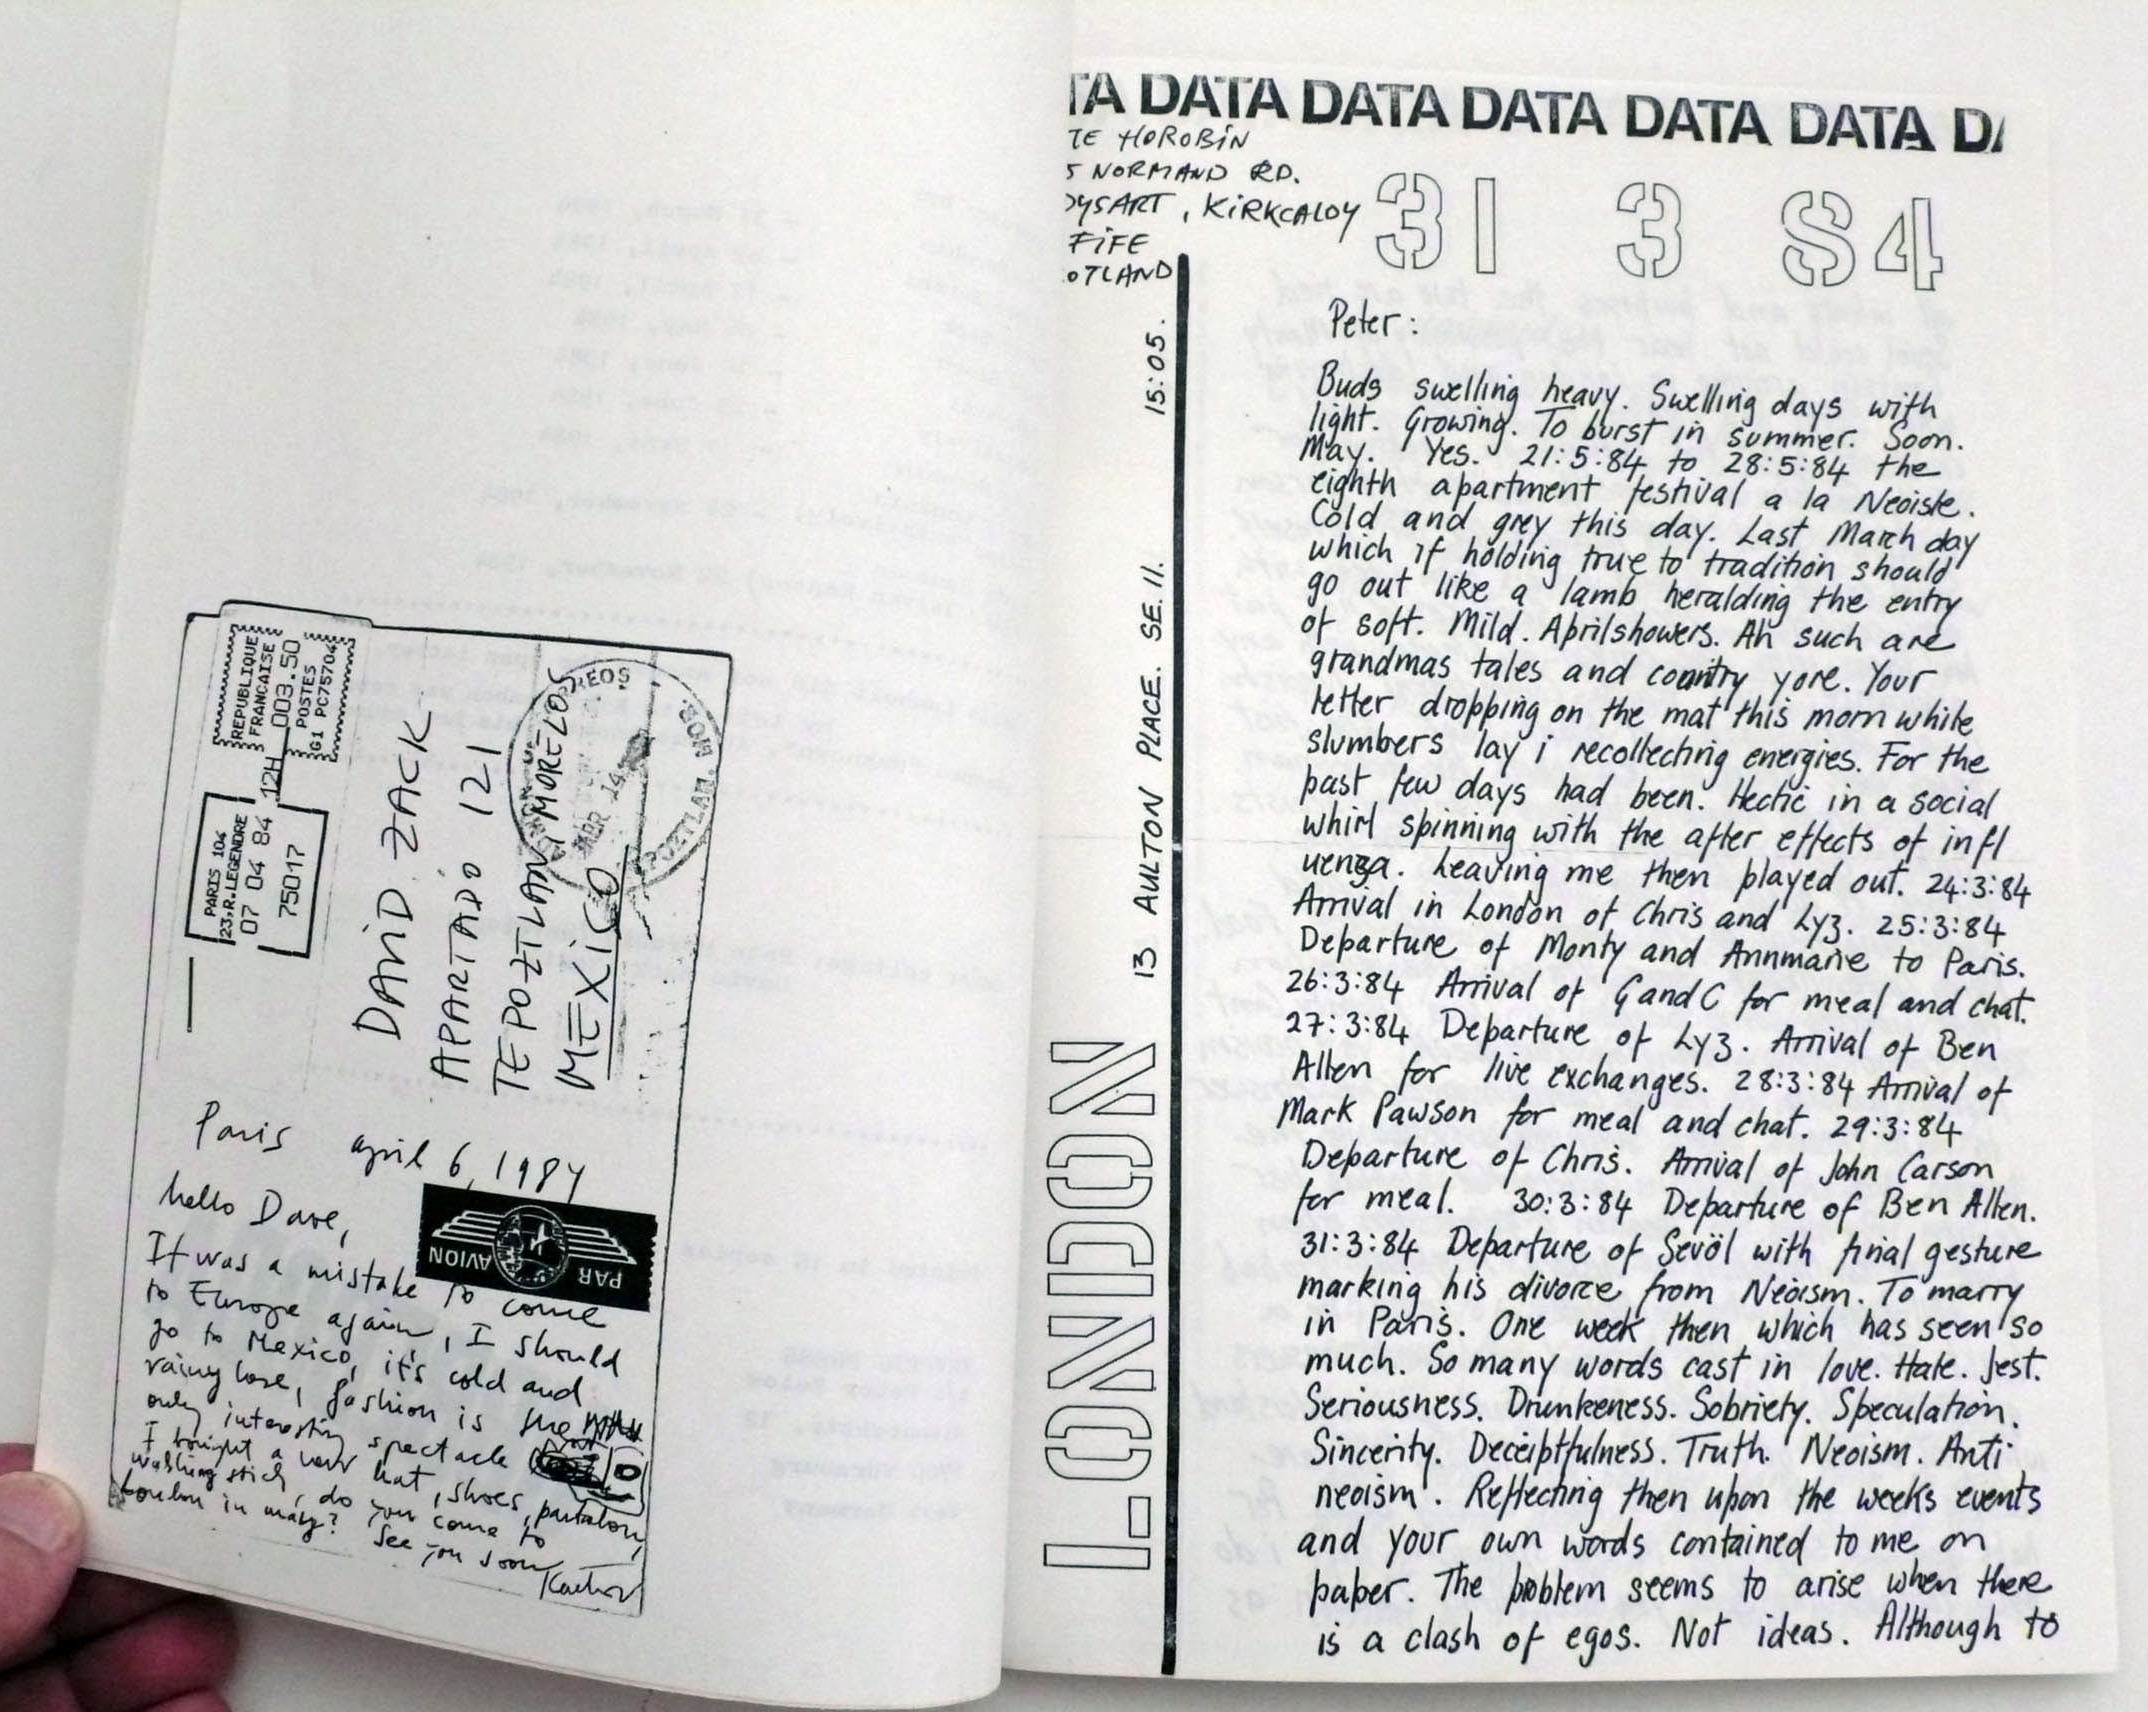 REPUBLIQUE
FRANCAISE
003.50
POSTES
G1 PC757046
PARIS 104
23,R.LEGENDRE
07 04 84 12H
75017
DAVID ZACK
APARTADO 121
TEPOZTLAN, MORELOS
MEXICO
Paris april 6, 1984
hello Dave,
PAR AVION
It was a mistake to come
to Europe again, I should
go to Mexico, it's cold and
rainy here, fashion is the
only interesting spectacle
I bought a new hat, shoes, pantalon,
walking stick, do you come to
London in may? See you soon
TA DATA DATA DATA DATA DATA DA
TE HOROBIN
5 NORMAND RD.
YSART, KIRKCALDY
FIFE
OTLAND
31 3 84
LONDON 13 AULTON PLACE. SE.11. 15:05.
Peter:
Buds swelling heavy. Swelling days with
light. Growing. To burst in summer. Soon.
May. Yes. 21:5:84 to 28:5:84 the
eighth apartment festival a la Neoiste.
Cold and grey this day. Last March day
which if holding true to tradition should
go out like a lamb heralding the entry
of soft. Mild. Aprilshowers. Ah such are
grandmas tales and country yore. Your
letter dropping on the mat this morn white
slumbers lay i recollecting energies. For the
past few days had been. Hectic in a social
whirl spinning with the after effects of infl
uenza. Leaving me then played out. 24:3:84
Arrival in London of Chris and Lyz. 25:3:84
Departure of Monty and Annmarie to Paris.
26:3:84 Arrival of G and C for meal and chat.
27:3:84 Departure of Lyz. Arrival of Ben
Allen for live exchanges. 28:3:84 Arrival of
Mark Pawson for meal and chat. 29:3:84
Departure of Chris. Arrival of John Carson
for meal. 30:3:84 Departure of Ben Allen.
31:3:84 Departure of Sevöl with final gesture
marking his divorce from Neoism. To marry
in Paris. One week then which has seen so
much. So many words cast in love. Hate. Jest.
Seriousness. Drunkeness. Sobriety. Speculation.
Sincerity. Deceiptfulness. Truth. Neoism. Anti
neoism. Reflecting then upon the weeks events
and your own words contained to me on
paper. The problem seems to arise when there
is a clash of egos. Not ideas. Although to